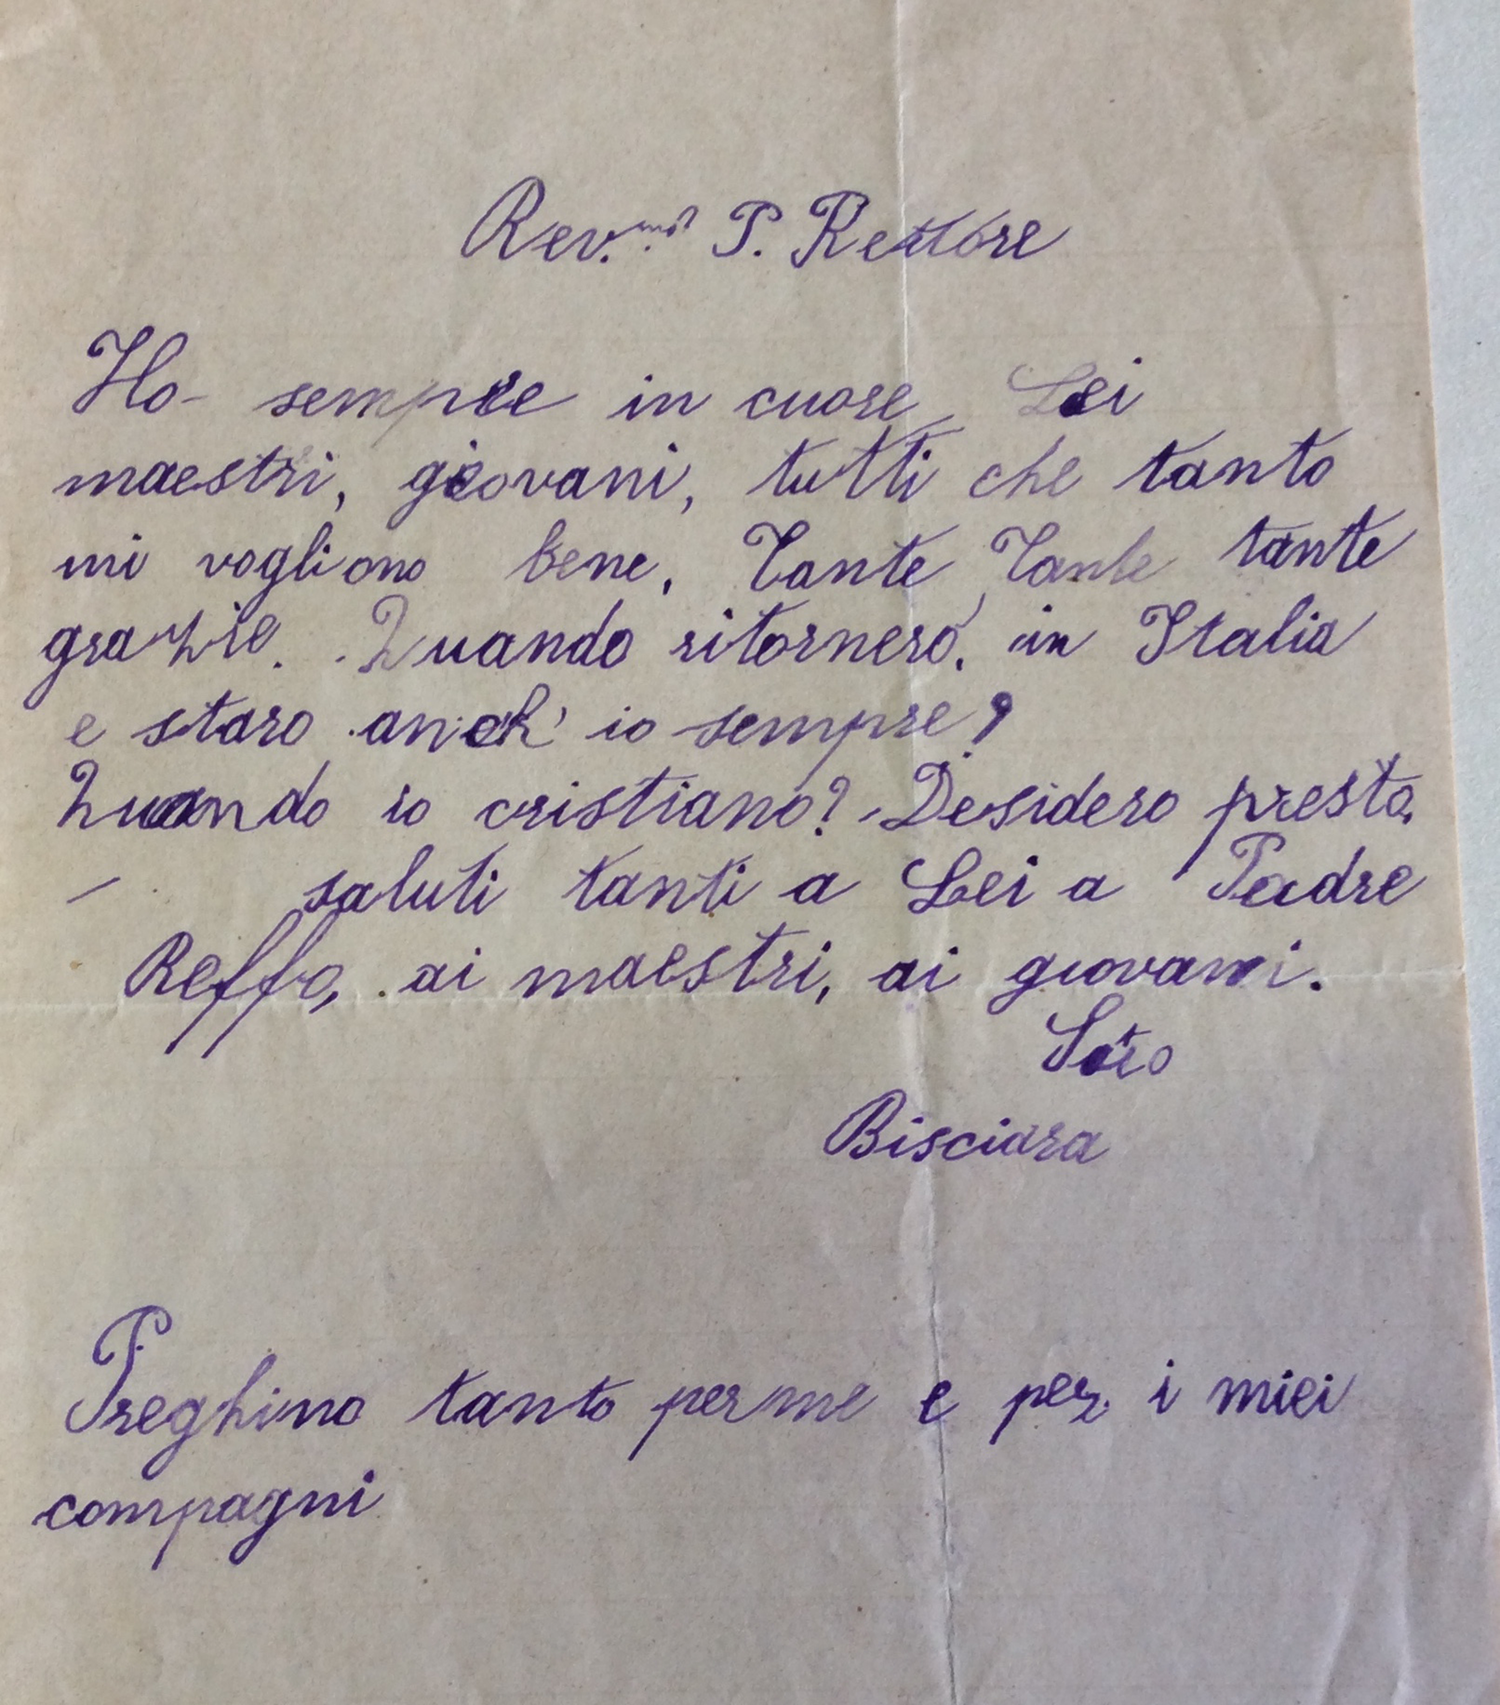 Rev.mo P. Rettore
Ho sempre in cuore Lei
maestri, giovani, tutti che tanto
mi vogliono bene, Tante Tante tante
grazie. Quando ritornerò in Italia
e staro anch' io sempre?
Quando io cristiano? Desidero presto.
- saluti tanti a Lei a Padre
Reffo, ai maestri, ai giovani.
Bisciara
Preghino tanto per me e per i miei
compagni